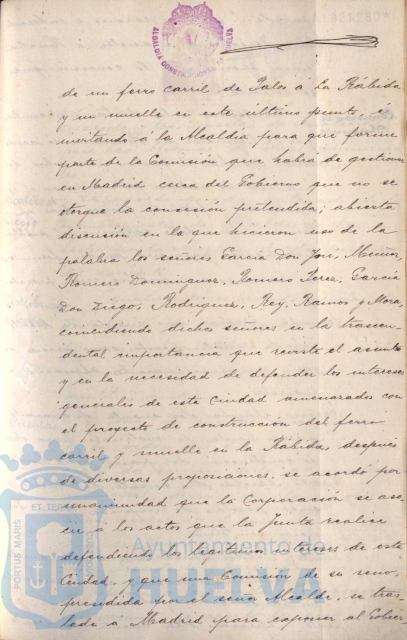 ALCALDÍA CONSTITUCIONAL HUELVA
de un ferro carril de Palos á La Rábida
y un muelle en este último punto, é
invitando á la Alcaldía para que forme
parte de la Comisión que habrá de gestionar
en Madrid cerca del Gobierno que no se
otorgue la concesión pretendida; abierta
discusión en la que hicieron uso de la
palabra los señores García Don José, Muñoz,
Romero Dominguez, Romero Perez, García
Don Diego, Rodriguez, Rey, Ramos y Mora,
coincidiendo dichos señores en la trascen-
dental importancia que reviste el asunto
y en la necesidad de defender los intereses
generales de esta Ciudad amenazados con
el proyecto de construcción del ferro
carril y muelle en la Rábida, después
de diversas proposiciones, se acordó por
unanimidad que la Corporación se aso-
cie á los actos que la Junta realice
defendiendo los legítimos intereses de esta
Ciudad, y que una Comisión de su seno
presidida por el señor Alcalde, se tras-
lade á Madrid para exponer al Gobier-
PORTUS MARIS
ET TERRAE
CUSTODIA
Ayuntamiento de
HUELVA